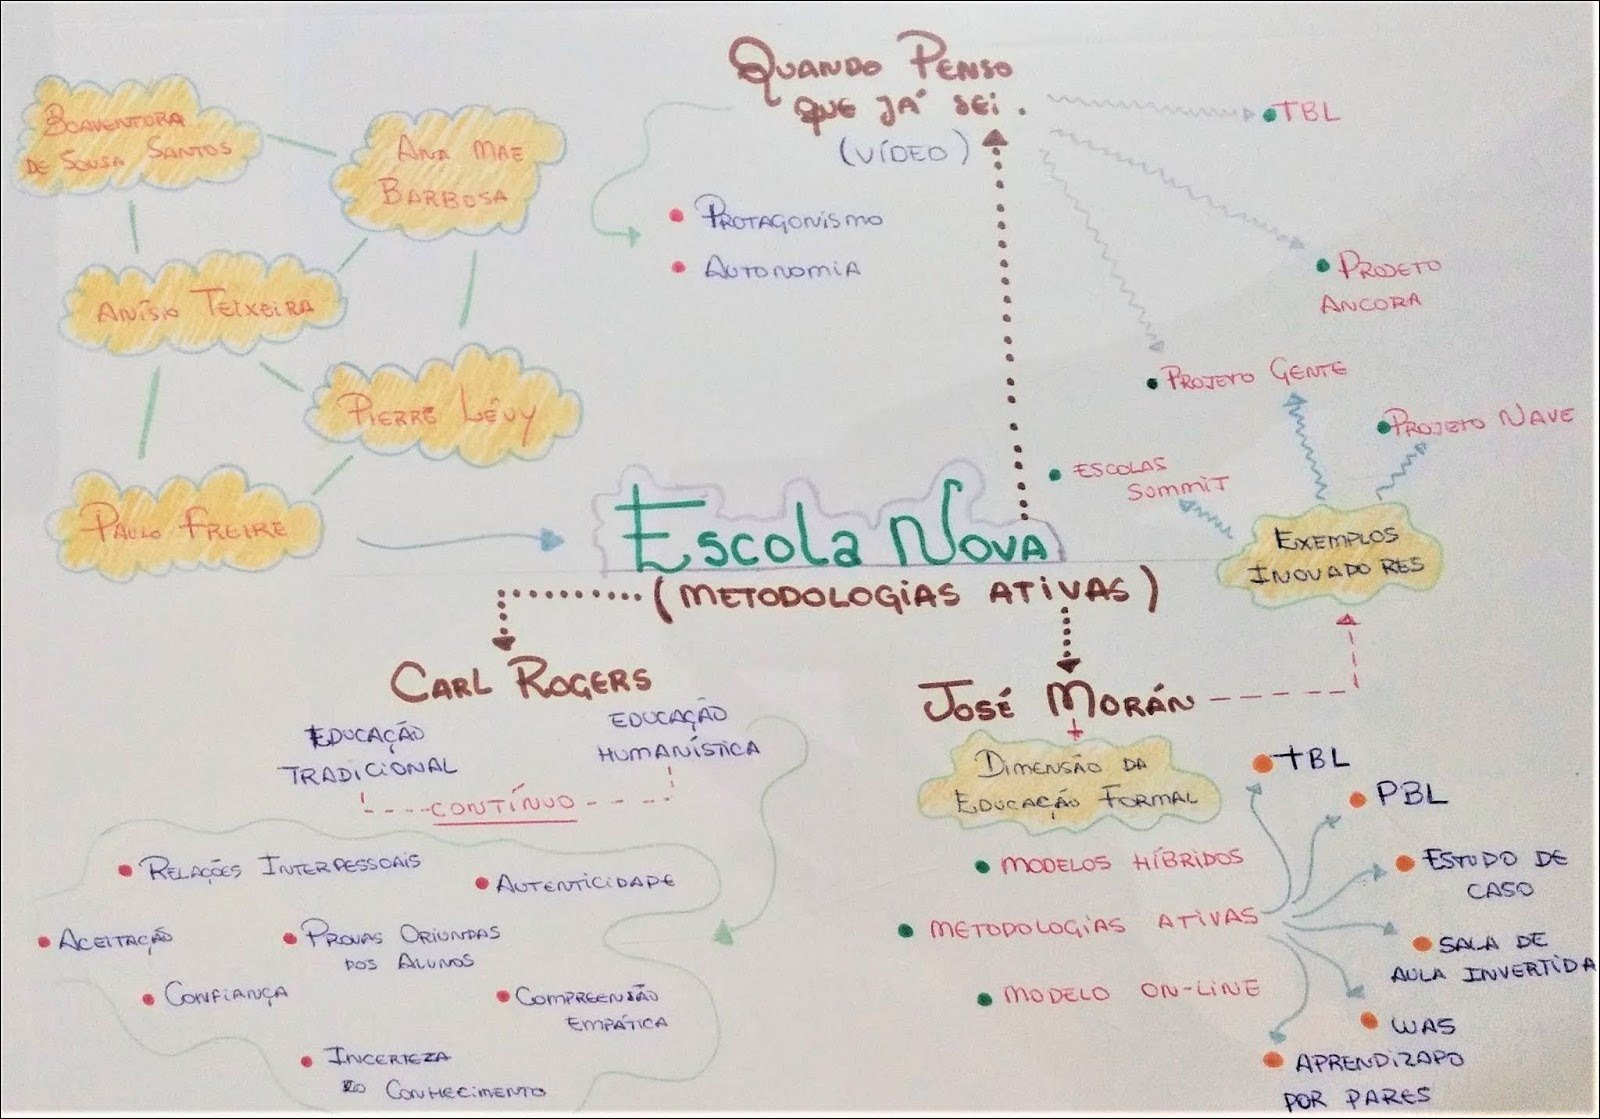 QUANDO PENSO
QUE JÁ SEI.
(VÍDEO)
PROTAGONISMO
AUTONOMIA
TBL
PROJETO
ANCORA
PROJETO GENTE
PROJETO NAVE
ESCOLAS
SUMMIT
EXEMPLOS
INOVADORES
BOAVENTURA
DE SOUSA SANTOS
ANA MAE
BARBOSA
ANÍSIO TEIXEIRA
PIERRE LÉVY
PAULO FREIRE
ESCOLA NOVA
(METODOLOGIAS ATIVAS)
CARL ROGERS
EDUCAÇÃO
TRADICIONAL
EDUCAÇÃO
HUMANÍSTICA
CONTÍNUO
RELAÇÕES INTERPESSOAIS
AUTENTICIDADE
ACEITAÇÃO
PROVAS ORIUNDAS
DOS ALUNOS
CONFIANÇA
COMPREENSÃO
EMPÁTICA
INCERTEZA
DO CONHECIMENTO
JOSÉ MORÁN
DIMENSÃO DA
EDUCAÇÃO FORMAL
MODELOS HÍBRIDOS
METODOLOGIAS ATIVAS
MODELO ON-LINE
TBL
PBL
ESTUDO DE
CASO
SALA DE
AULA INVERTIDA
WAS
APRENDIZADO
POR PARES